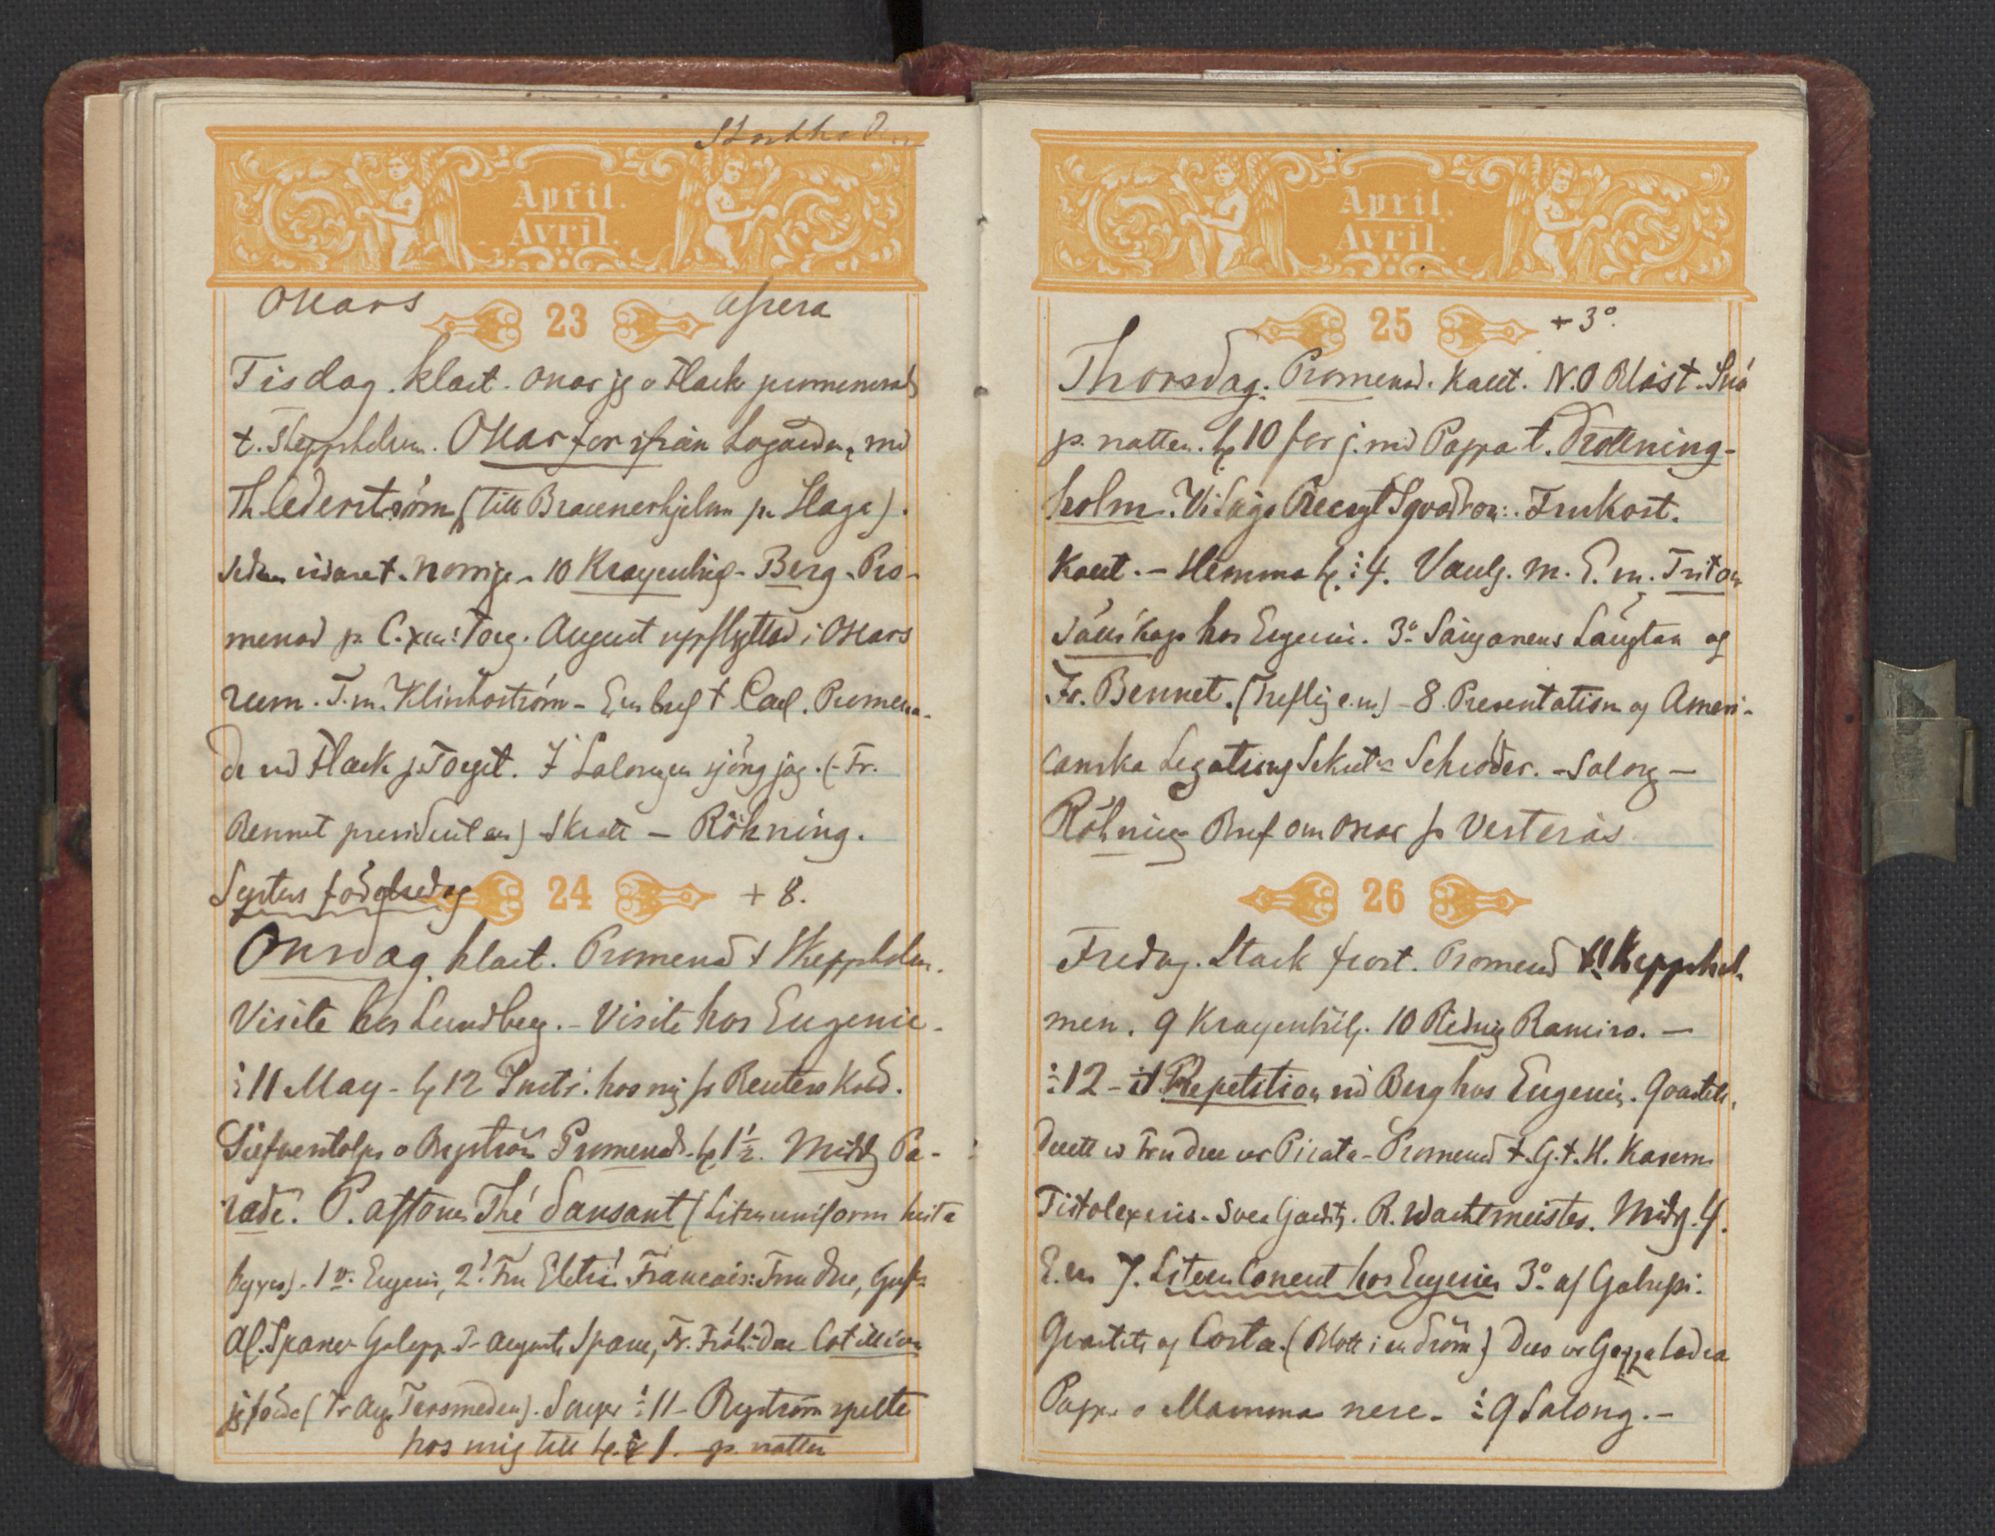 Stockholm
April.
Avril.
Oscars afresa
23
Tisdag. klart. Oscar jg o Flack promenerade
t. Skeppsholm. Oscar for ifrån Logården, med
Th Cederström (till Braunerhjelm p. Haga).
sedan vidare t. Norrige - 10 Krayenhielf - Berg - Pro-
menad p. C. XIII: Torg. August uppflyttad i Oscars
rum. T. m. Klinkoström - Em bref t Carl. Promena-
de md Flack p. Torget. I Salongen sjöng jag. (- Fr.
Bennet - Skratt - Röhning.
Systers födelsedag
24 + 8.
Onsdag. klart. Promenad t Skeppsholm.
Visite hos Lundberg. - Visite hos Eugenie.
11 May - kl 12 Instr. hos mig p Reuters
Promenad kl 1½. Middg Pa-
rade. P. aftonen Thé dansant (Liten uniform
1 v. Eugenie, 2. Fru Francais: Fru Due,
Af. Sparre Galopp Sparre, Fr. Cotillion
(Fr Aug. Tersmeden). Super 11 - Byström spelte
hos mig till kl. 1. p. natten
April.
Avril.
25 + 3°.
Thorsdag. Promenad. kallt. N.O Blåst. Snö
p. natten. kl 10 for j. md Pappa t. Drottning-
holm. Vi sågo Recryt Sqvadron: Frukost.
Kallt. - Hemma kl 4. Vanlg. M. E. m. Triton
sällskap hos Eugenie. 3º Sångarens Längtan af
Fr. Bennet. (Treflig e.m) - 8 Presentation af Ameri-
canska Legations Sekret. Schröder. - Salong -
Röhning Bref om Oscar fr Vesterås
26
Fredag. Stark frost. Promenad t Skeppshol-
men. 9 Krayenhielf. 10 Ridning Ramiro. -
12 - Repetition md Berg hos Eugenie. Qvartett,
Duett w Fru Due ur Pirata - Promenad t. G. t. H. Kasern
Pistolexercis. Svea Gardt. R. Wachtmeister. Midg. 4.
E. m 7. Liten Concert hos Eugenie 3º af Galuppi.
Qvartett af Costa. (Blott i en dröm) Duo ur Gazza Ladra
Pappa o Mamma nere. 9 Salong. -